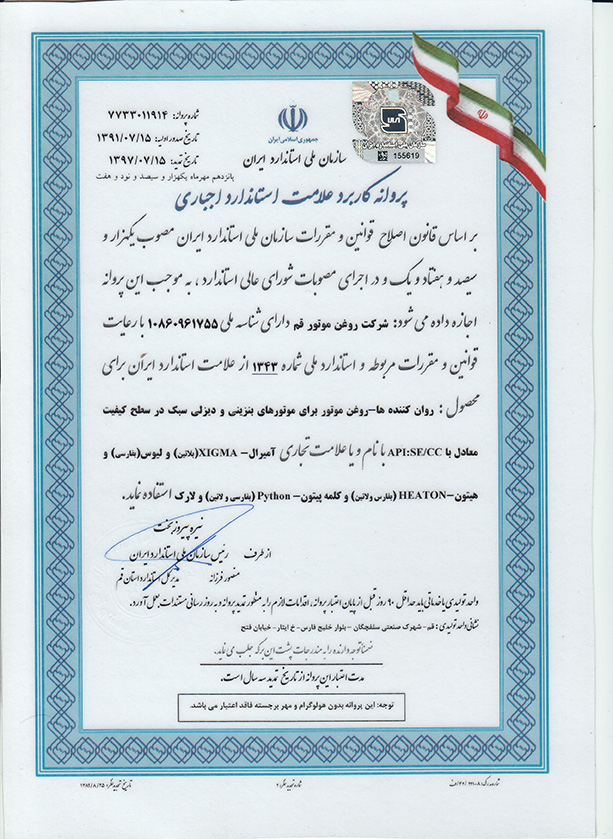 شماره پروانه: ۷۷۳۳۰۱۱۹۱۴
تاریخ صدور اولیه: ۱۳۹۱/۰۷/۱۵
تاریخ تمدید: ۱۳۹۷/۰۷/۱۵
پانزدهم مهرماه یکهزار و سیصد و نود و هفت
جمهوری اسلامی ایران
سازمان ملی استاندارد ایران
155619
پروانه کاربرد علامت استاندارد اجباری
بر اساس قانون اصلاح قوانین و مقررات سازمان ملی استاندارد ایران مصوب یکهزار و
سیصد و هفتاد و یک و در اجرای مصوبات شورای عالی استاندارد ، به موجب این پروانه
اجازه داده می شود: شرکت روغن موتور قم دارای شناسه ملی ۱۰۸۶۰۹۶۱۷۵۵ با رعایت
قوانین و مقررات مربوطه و استاندارد ملی شماره ۱۳۴۳ از علامت استاندارد ایران برای
محصول : روان کننده ها-روغن موتور برای موتورهای بنزینی و دیزلی سبک در سطح کیفیت
معادل با API:SE/CC با نام و یا علامت تجاری آمیرال- XIGMA(بلاتین) و لیوس(بفارسی) و
هیتون-HEATON (بفارسی ولاتین) و کلمه پیتون- Python (بفارسی و لاتین) و لارک استفاده نماید.
نیره پیروزبخت
از طرف رئیس سازمان ملی استاندارد ایران
منصور فرزانه مدیر کل استاندارد استان قم
واحد تولیدی یا خدماتی باید حداقل ۹۰ روز قبل از پایان اعتبار پروانه، اقدامات لازم را به منظور تمدید پروانه و به روز رسانی مستندات بعمل آورد.
نشانی واحد تولیدی : قم- شهرک صنعتی سلفچگان- بلوار خلیج فارس- خ ایثار- خیابان فتح
ضمنا توجه دارنده را به مندرجات پشت این برگه جلب می نماید.
مدت اعتبار این پروانه از تاریخ تمدید سه سال است.
توجه: این پروانه بدون هولوگرام و مهر برجسته فاقد اعتبار می باشد.